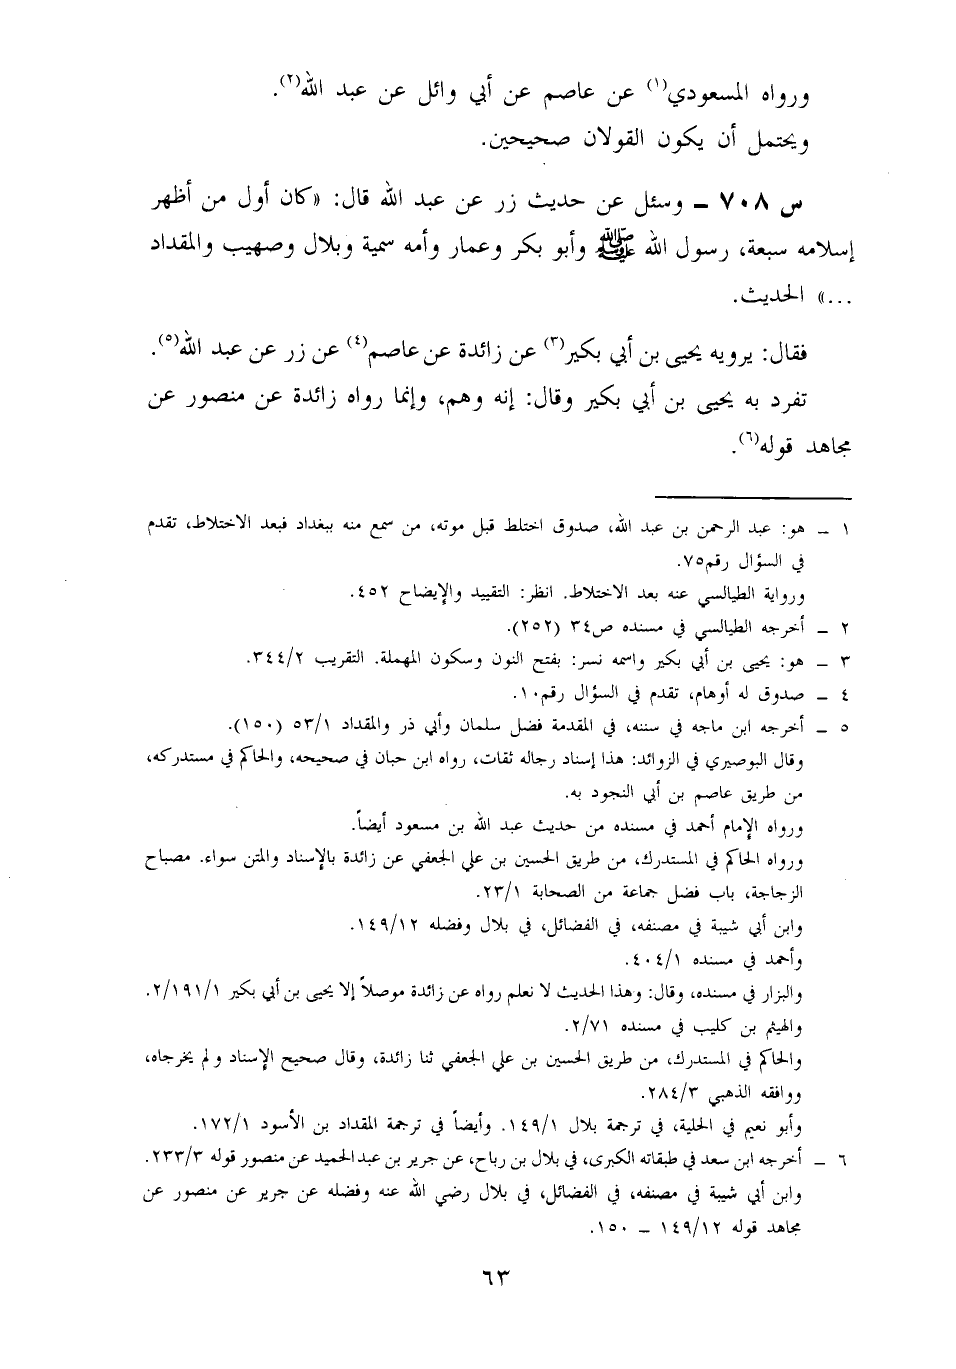 ورواه المسعودي(١) عن عاصم عن أبي وائل عن عبد الله(٢).
ويحتمل أن يكون القولان صحيحين.
س ٧٠٨ ــ وسئل عن حديث زر عن عبد الله قال: «كان أول من أظهر
إسلامه سبعة، رسول الله ﷺ وأبو بكر وعمار وأمه سمية وبلال وصهيب والمقداد
...» الحديث.
فقال: يرويه يحيى بن أبي بكير(٣) عن زائدة عن عاصم(٤) عن زر عن عبد الله(٥).
تفرد به يحيى بن أبي بكير وقال: إنه وهم، وإنما رواه زائدة عن منصور عن
مجاهد قوله(٦).
١ ــ هو: عبد الرحمن بن عبد الله، صدوق اختلط قبل موته، من سمع منه ببغداد فبعد الاختلاط، تقدم
في السؤال رقم٧٥.
ورواية الطيالسي عنه بعد الاختلاط. انظر: التقييد والإيضاح ٤٥٢.
٢ ــ أخرجه الطيالسي في مسنده ص٣٤ (٢٥٢).
٣ ــ هو: يحيى بن أبي بكير واسمه نسر: بفتح النون وسكون المهملة. التقريب ٣٤٤/٢.
٤ ــ صدوق له أوهام، تقدم في السؤال رقم١٠.
٥ ــ أخرجه ابن ماجه في سننه، في المقدمة فضل سلمان وأبي ذر والمقداد ٥٣/١ (١٥٠).
وقال البوصيري في الزوائد: هذا إسناد رجاله ثقات، رواه ابن حبان في صحيحه، والحاكم في مستدركه،
من طريق عاصم بن أبي النجود به.
ورواه الإمام أحمد في مسنده من حديث عبد الله بن مسعود أيضاً.
ورواه الحاكم في المستدرك، من طريق الحسين بن علي الجعفي عن زائدة بالإسناد والمتن سواء. مصباح
الزجاجة، باب فضل جماعة من الصحابة ٢٣/١.
وابن أبي شيبة في مصنفه، في الفضائل، في بلال وفضله ١٤٩/١٢.
وأحمد في مسنده ٤٠٤/١.
والبزار في مسنده، وقال: وهذا الحديث لا نعلم رواه عن زائدة موصلاً إلا يحيى بن أبي بكير ٢/١٩١/١.
والهيثم بن كليب في مسنده ٢/٧١.
والحاكم في المستدرك، من طريق الحسين بن علي الجعفي ثنا زائدة، وقال صحيح الإسناد ولم يخرجاه،
ووافقه الذهبي ٢٨٤/٣.
وأبو نعيم في الحلية، في ترجمة بلال ١٤٩/١. وأيضاً في ترجمة المقداد بن الأسود ١٧٢/١.
٦ ــ أخرجه ابن سعد في طبقاته الكبرى، في بلال بن رباح، عن جرير بن عبد الحميد عن منصور قوله ٢٣٣/٣.
وابن أبي شيبة في مصنفه، في الفضائل، في بلال رضي الله عنه وفضله عن جرير عن منصور عن
مجاهد قوله ١٤٩/١٢ ــ ١٥٠.
٦٣